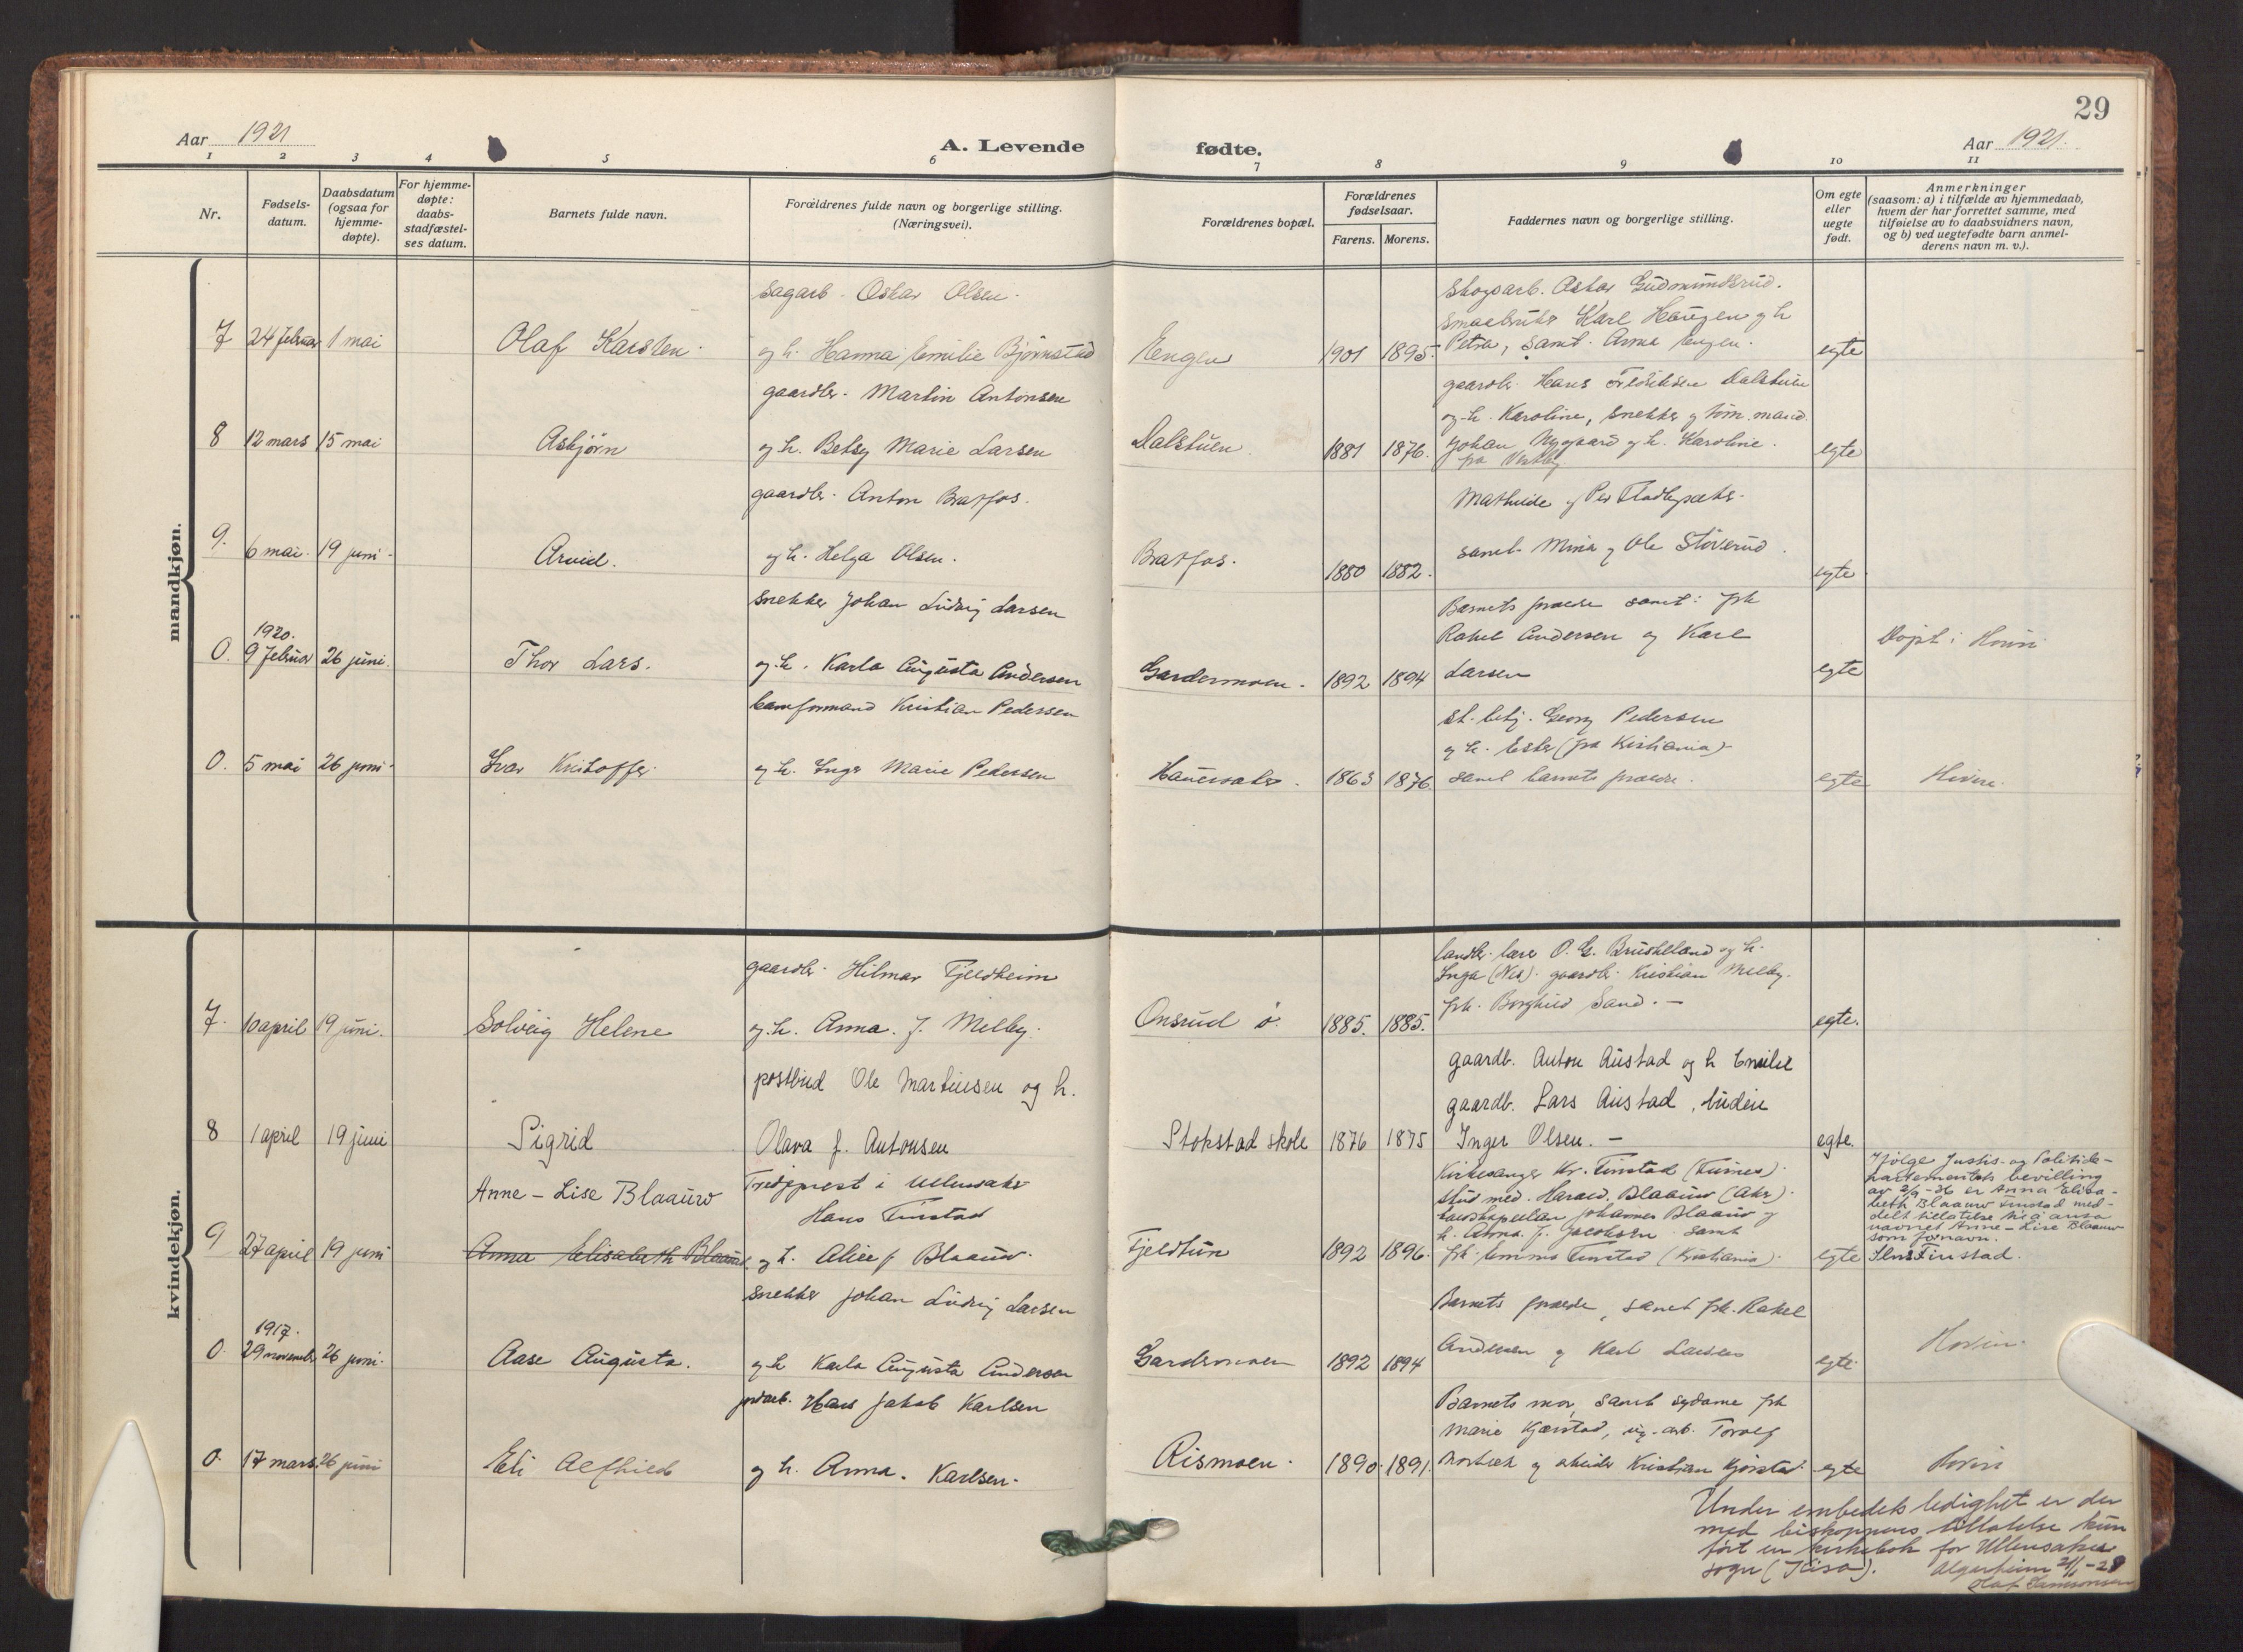 29
Aar 1921
A. Levende
fødte.
Aar 1921.
1 2 3 4 5 6 7 8 9 10 11
Nr.
Fødsels-
datum.
Daabsdatum
(ogsaa for
hjemme-
døpte).
For hjemme-
døpte:
daabs-
stadfæstel-
ses datum.
Barnets fulde navn.
Forældrenes fulde navn og borgerlige stilling.
(Næringsvei).
Forældrenes bopæl.
Forældrenes
fødselsaar.
Farens. Morens.
Faddernes navn og borgerlige stilling.
Om egte
eller
uegte
født.
Anmerkninger
(saasom: a) i tilfælde av hjemmedaab,
hvem der har forrettet samme, med
tilføielse av to daabsvidners navn,
og b) ved uegtefødte barn anmel-
derens navn m. v.).
mandkjøn.
7 24 februar 1 mai
Olaf Karsten.
sagarb. Oskar Olsen.
og h. Hanna Emilie Bjørnstad
Engen
1901 1895.
skogsarb. Oskar Gudmundsrud.
smaabruker Karl Haugen og h
Petra, samt. Anna Engen.
egte
8 12 mars 15 mai
Asbjørn
gaardbr. Martin Antonsen
og h. Betsy Marie Larsen
Dalstuen.
1881 1876.
gaardbr. Hans Fredriksen Dalstuen
og h. Karoline, snekker og tøm. mand
Johan Nygaard og h. Karoline.
fra Vestby
egte
9. 6 mai. 19 juni.
Arvid.
gaardbr. Anton Bratfos.
og h. Helga Olsen.
Bratfos.
1880 1882.
Mathilde og Per
samt Mina og Ole Støverud.
egte
0. 1920. 9 februar 26 juni.
Thor Lars.
snekker Johan Ludvig Larsen
og h. Karla Augusta Andersen
Gardermoen.
1892 1894
Barnets forældre samt: frk
Rakel Andersen og Karl
Larsen
egte
Døpt i Hovin
0. 5 mai 26 juni.
Ivar Kristoffer.
banformand Kristian Pedersen
og h. Inger Marie Pedersen
Hauersæter.
1863 1876.
st. betj. Georg Pedersen
og h. Ester (fra Kristiania)
samt barnets forældre.
egte
Hovin.
kvindekjøn.
7. 10 april 19 juni.
Solveig Helene
gaardbr. Hilmar Fjeldheim
og h. Anna. J. Melby.
Onsrud ø.
1885. 1885.
landbr. lærer O. G. Bruskeland og h.
Inga (Nes). gaardbr. Kristian Melby.
frk. Borghild Sand. —
egte.
8 1 april 19 juni
Sigrid
postbud Ole Martinsen og h.
Olava f. Antonsen
Stokstad skole
1876 1875
gaardb. Anton Austad og h Emilie
gaardb. Lars Austad, budeie
Inger Olsen. —
egte.
9 27 april 19 juni
Anne - Lise Blaauw
Anna Elisabeth Blaauw
Tredjeprest i Ullensaker
Hans Finstad
og h. Alice f Blaauw.
Fjeldtun
1892 1896.
Kirkesanger Kr. Finstad (Furnes).
stud med. Harald. Blaauw (Aker).
Johannes Blaauw og
h. Anna. f. Jacobsen. samt
frk. Emma Finstad (Kristiania).
egte
Ifølge Justis- og Politide-
partementets bevilling
av 2/9 - 26 er Anna Elisa-
beth Blaauw Finstad med-
delt tillatelse til å anta
navnet Anne - Lise Blaauw
som fornavn.
Finstad.
0. 1917. 29 november 26 juni.
Aase Augusta.
snekker Johan Ludvig Larsen
og h Karla Augusta Andersen
Gardermoen
1892 1894
Barnets forældre, samt frk. Rakel
Andersen og Karl Larsen
egte.
Hovin.
0. 17 mars. 26 juni
Eli Alfhild
jordarb. Hans Jakob Karlsen
og h. Anna. Karlsen.
Rismoen.
1890. 1891.
Barnets mor, samt sydame frk
Marie Kjørstad,
og arbeider Kristian Kjørstad.
egte
Hovin
Under embedets ledighet er der
med biskoppens tillatelse kun
ført en kirkebok for Ullensaker
sogn (Kisa). Algarheim 21/1 - 28
Olaf Samsonsen